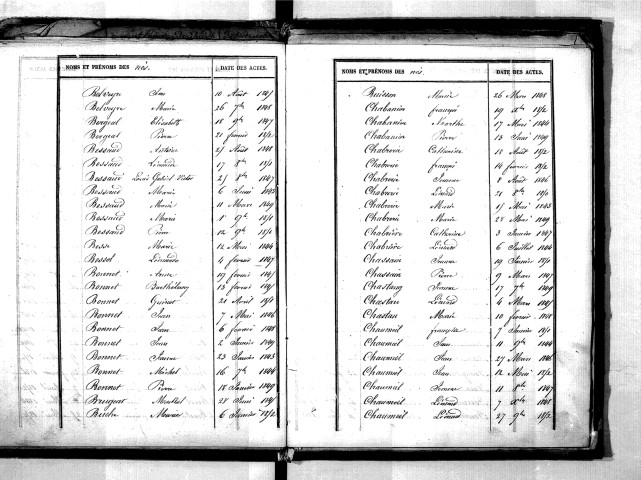 NOMS ET PRÉNOMS DES nés. DATE DES ACTES.
Belveyre 10 Août
Belveyre Marie 26 7bre 1848
Bergeal Elisabeth 18 9bre 1847
Bergeal Pierre 21 février 1852
Bessaud Antoine 25 Août 1848
Bessaud Léonard 17 8bre 1851
Bessaud Louis Gabriel Victor 25 8bre 1847
Bessaud Marie 6 Juin 1843
Bessaud Marie 11 Mars 1849
Bessaud Marie 1er 9bre 1851
Bessaud Pierre 12 9bre 1851
Besse Marie 12 Mai 1844
Bessol Léonard 4 février 1847
Bonnet Anne 19 février
Bonnet Barthélemy 13 février
Bonnet 21 Avril 1851
Bonnet Jean 7 Mai 1846
Bonnet Jean 6 février 1848
Bonnet 2 Janvier 1849
Bonnet Jeanne 23 Janvier 1843
Bonnet Michel 16 7bre 1844
Bonnet Pierre 18 Janvier 1849
Martial 28 Juin
6 Janvier 1852
NOMS ET PRÉNOMS DES nés. DATE DES ACTES.
Buisson Marie 26 Mars 1848
Chabanier françois 19 Xbre 1852
Chabanier Marthe 17 Mars 1844
Chabanier Pierre 13 Juin 1849
Chabrerie Catherine 18 Août 1852
Chabrerie françois 14 février 1852
Chabrerie Jeanne 8 Août 1846
Chabrerie Léonard 21 8bre 1851
Chabrerie Marie 15 Mai 1843
Chabrerie Marie 28 Mai 1849
Chabrière Catherine 3 Janvier 1847
Chabrière Léonard 6 Juillet 1844
Chassain Jeanne 19 Janvier 1851
Chassain Pierre 9 Mars 1847
Chastang 17 7bre 1849
Chastan Léonard 4 Mars 1851
Chastan Marie 10 février 1848
Chaumeil françoise 7 Janvier 1851
Chaumeil Jean 11 9bre 1844
Chaumeil Jean 27 Mars 1846
Chaumeil Jean 12 Mai 1852
Chaumeil Jeanne 11 8bre 1847
Chaumeil Léonard 7 Xbre 1848
Chaumeil Léonard 27 9bre 1852